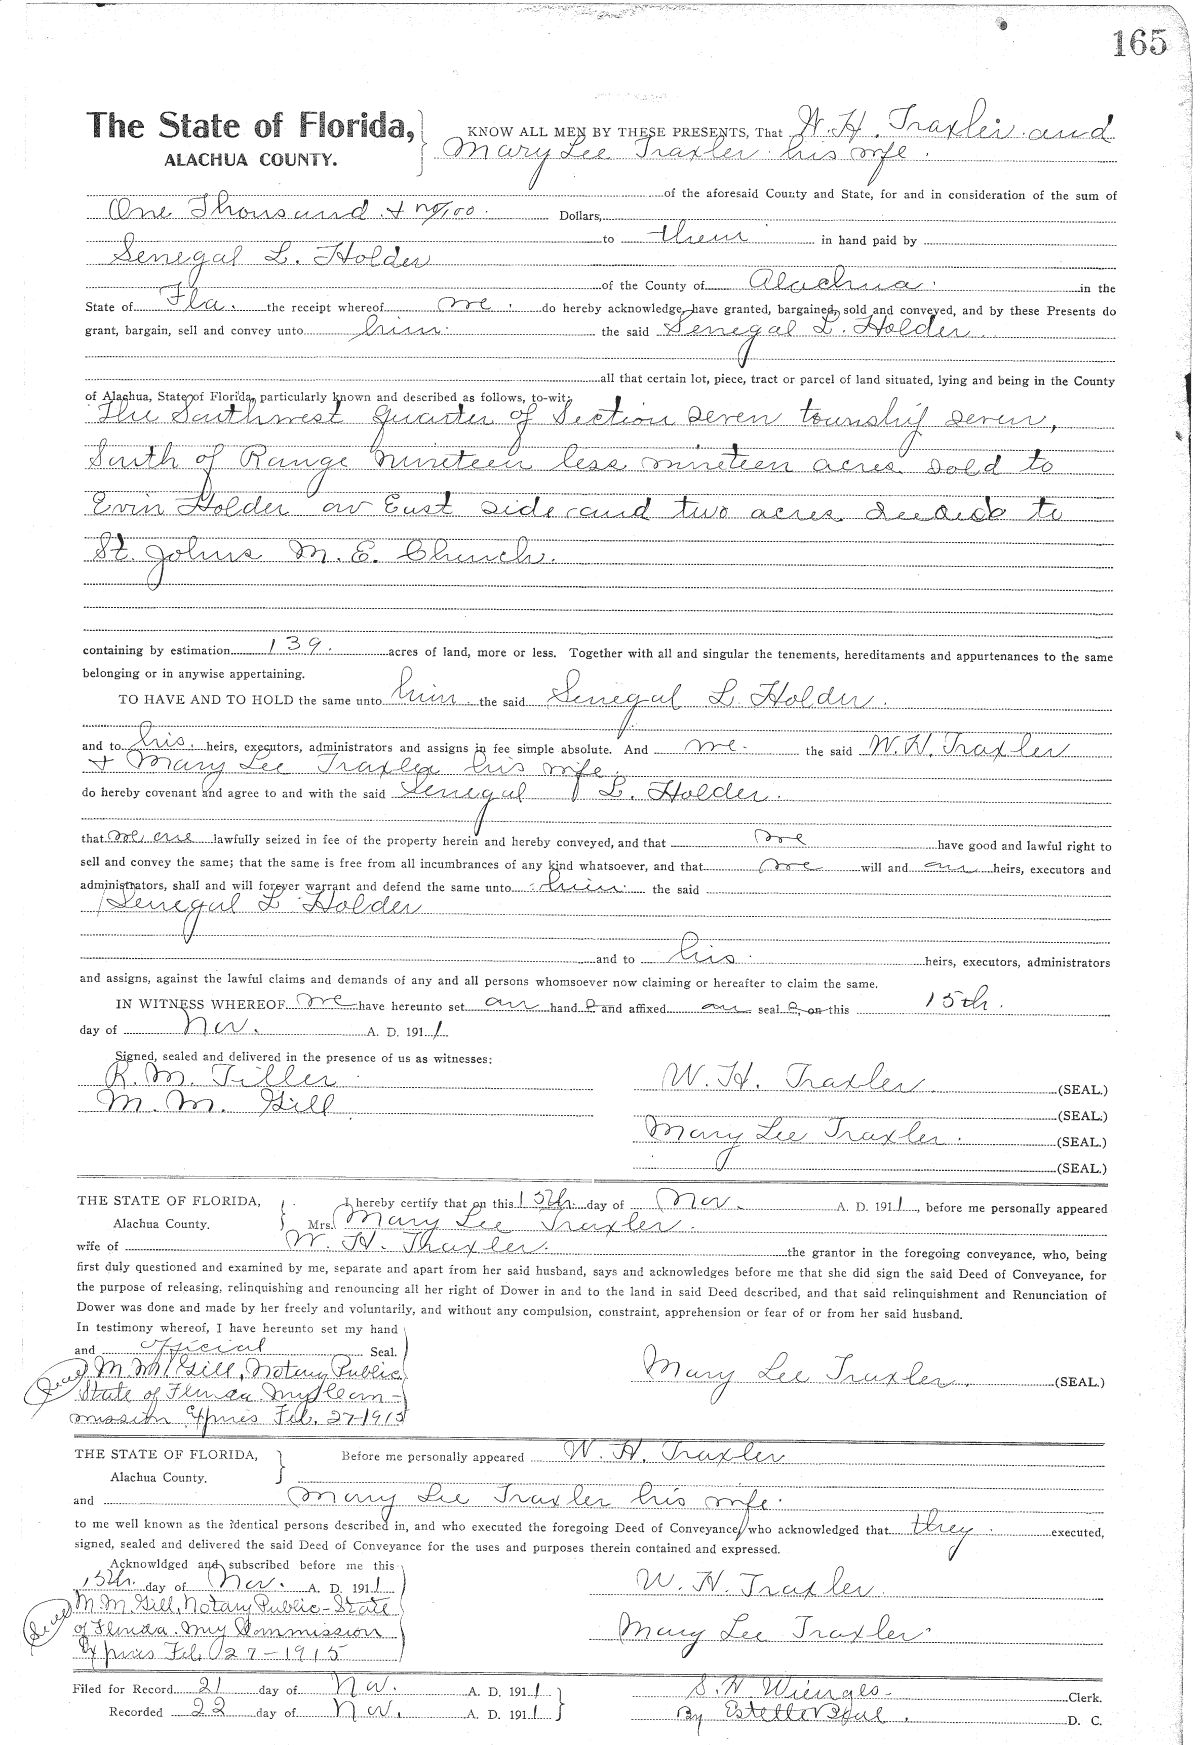 165
The State of Florida, KNOW ALL MEN BY THESE PRESENTS, That W. H. Traxler and
ALACHUA COUNTY. Mary Lee Traxler his wife.
of the aforesaid County and State, for and in consideration of the sum of
One Thousand + no/100. Dollars,
to them in hand paid by
Senegal L. Holder
of the County of Alachua. in the
State of Fla. the receipt whereof we do hereby acknowledge, have granted, bargained, sold and conveyed, and by these Presents do
grant, bargain, sell and convey unto him the said Senegal L. Holder
all that certain lot, piece, tract or parcel of land situated, lying and being in the County
of Alachua, State of Florida, particularly known and described as follows, to-wit:
The Southwest quarter of Section seven township seven,
South of Range nineteen less nineteen acres sold to
Evin Holder on East side and two acres deeded to
St. Johns M. E. Church.
containing by estimation 139. acres of land, more or less. Together with all and singular the tenements, hereditaments and appurtenances to the same
belonging or in anywise appertaining.
TO HAVE AND TO HOLD the same unto him the said Senegal L. Holder.
and to his heirs, executors, administrators and assigns in fee simple absolute. And we the said W. H. Traxler
+ Mary Lee Traxler his wife.
do hereby covenant and agree to and with the said Senegal L. Holder.
that we are lawfully seized in fee of the property herein and hereby conveyed, and that we have good and lawful right to
sell and convey the same; that the same is free from all incumbrances of any kind whatsoever, and that we will and our heirs, executors and
administrators, shall and will forever warrant and defend the same unto him the said
Senegal L. Holder
and to his heirs, executors, administrators
and assigns, against the lawful claims and demands of any and all persons whomsoever now claiming or hereafter to claim the same.
IN WITNESS WHEREOF we have hereunto set our hand s and affixed our seal s, on this 15th.
day of Nov. A. D. 1911.
Signed, sealed and delivered in the presence of us as witnesses:
R. M. Tiller W. H. Traxler (SEAL.)
M. M. Gill (SEAL.)
Mary Lee Traxler. (SEAL.)
(SEAL.)
THE STATE OF FLORIDA, I hereby certify that on this 15th. day of Nov. A. D. 1911, before me personally appeared
Alachua County. Mrs. Mary Lee Traxler.
wife of W. H. Traxler. the grantor in the foregoing conveyance, who, being
first duly questioned and examined by me, separate and apart from her said husband, says and acknowledges before me that she did sign the said Deed of Conveyance, for
the purpose of releasing, relinquishing and renouncing all her right of Dower in and to the land in said Deed described, and that said relinquishment and Renunciation of
Dower was done and made by her freely and voluntarily, and without any compulsion, constraint, apprehension or fear of or from her said husband.
In testimony whereof, I have hereunto set my hand
and official Seal.
M. M. Gill, Notary Public Mary Lee Traxler. (SEAL.)
Seal State of Florida My Com-
mission Expires Feb. 27-1915
THE STATE OF FLORIDA, Before me personally appeared W. H. Traxler
Alachua County.
and Mary Lee Traxler his wife.
to me well known as the identical persons described in, and who executed the foregoing Deed of Conveyance, who acknowledged that they executed,
signed, sealed and delivered the said Deed of Conveyance for the uses and purposes therein contained and expressed.
Acknowldged and subscribed before me this
15th. day of Nov. A. D. 1911 W. H. Traxler.
M. M. Gill, Notary Public-State
Seal of Florida. My Commission Mary Lee Traxler.
Expires Feb. 27-1915
Filed for Record 21 day of Nov. A. D. 1911 S. H. Wienges Clerk.
Recorded 22 day of Nov. A. D. 1911 By Estelle D. C.